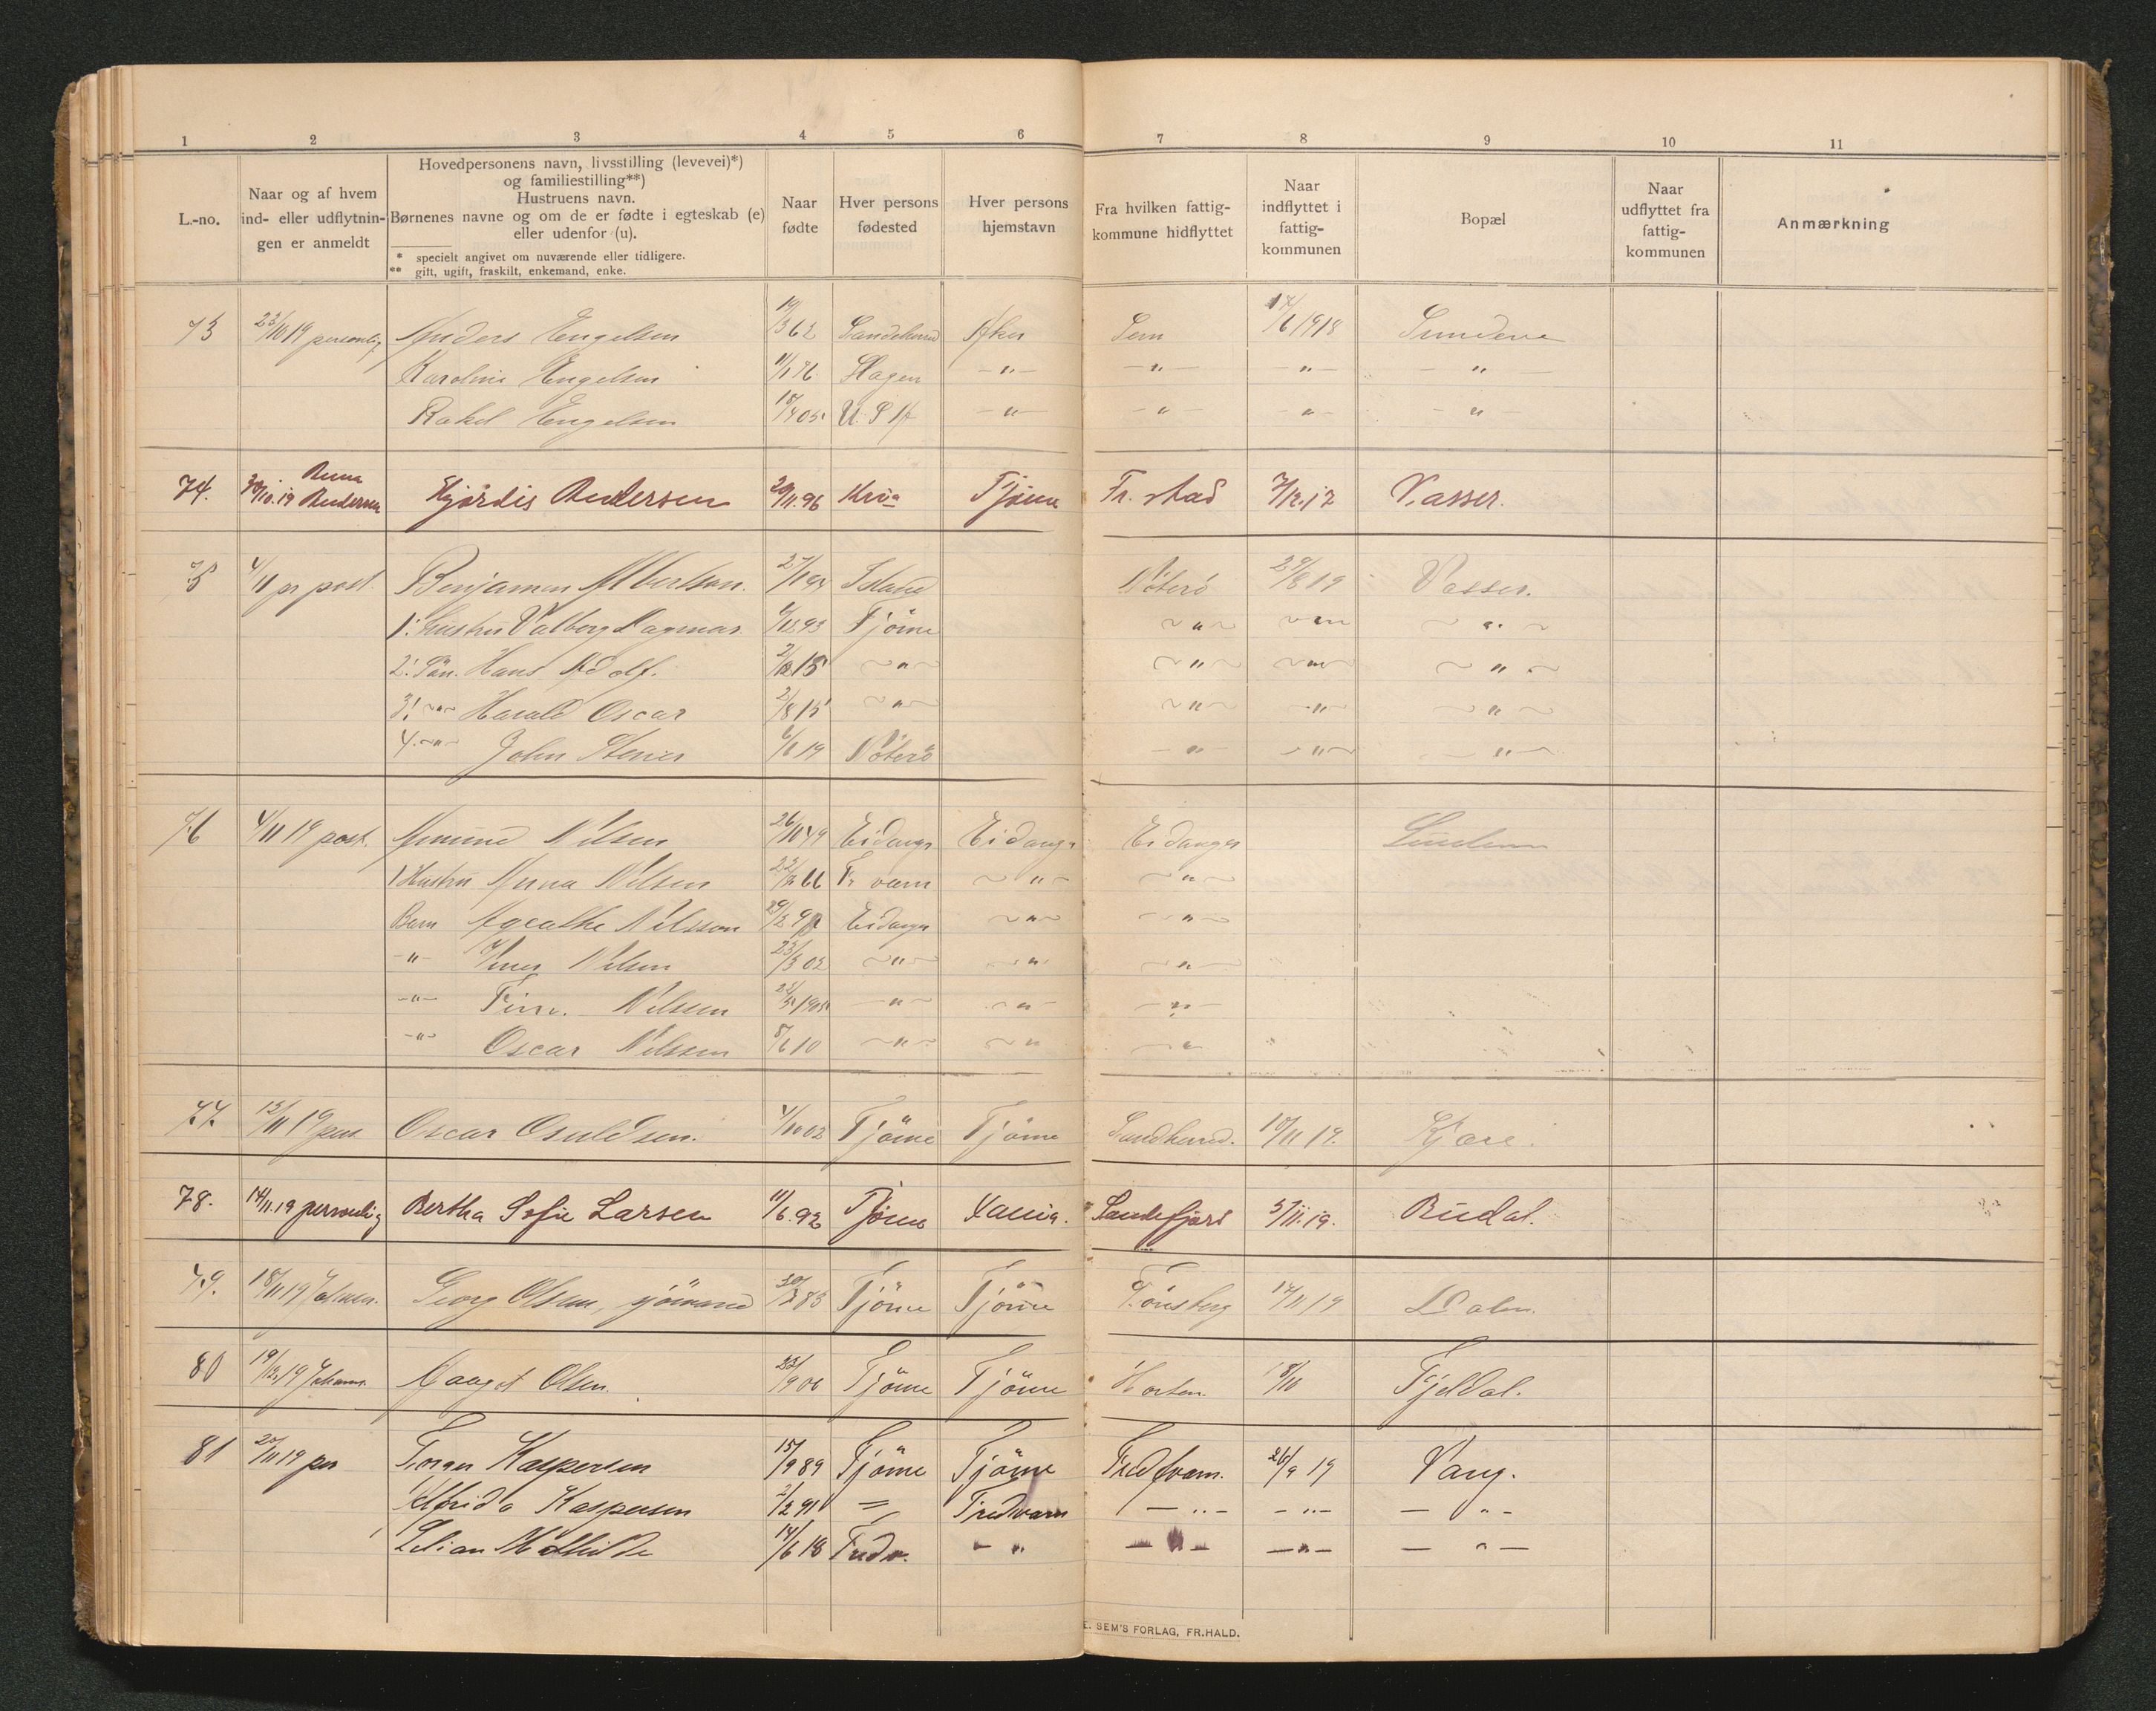 1 2 3 4 5 6 7 8 9 10 11
L.-no.
Naar og af hvem
ind- eller udflytnin-
gen er anmeldt
Hovedpersonens navn, livsstilling (levevei)*)
og familiestilling**)
Hustruens navn.
Børnenes navne og om de er fødte i egteskab (e)
eller udenfor (u).
* specielt angivet om nuværende eller tidligere.
** gift, ugift, fraskilt, enkemand, enke.
Naar
fødte
Hver persons
fødested
Hver persons
hjemstavn
Fra hvilken fattig-
kommune hidflyttet
Naar
indflyttet i
fattig-
kommunen
Bopæl
Naar
udflyttet fra
fattig-
kommunen
Anmærkning
73 23/10 19 personlig Anders Engelsen 19/3 62 Sandeherred Aker Sem 17/6 1918 Sundene
Karoline Engelsen 11/1 76 Slagen -"- -"- -"- -"-
Rakel Engelsen 18/4 05 U.S.A -"- -"- -"- -"-
74. 30/10.19 Anna Andersen Hjørdis Andersen 20/11.96 Kria Tjøme Fr.stad 7/12.17 Vasser.
75 4/11 pr post. Benjamin Albertson. 27/1 94 Island Nøterö 29/8 19 Vasser.
1: Hustru Valborg Dagmar 6/12 93 Tjöme ~"~ ~"~ ~"~
2: Sön. Hans Adolf. 2/12 13 ~"~ ~"~ ~"~ ~"~
3: ~"~ Harald Oscar 2/8 15 ~"~ ~"~ ~"~ ~"~
4. ~"~ John Stener 6/6 19 Nöterö -"- ~"~ ~"~
76 4/11 19 post. Amund Nilsen 26/11 49 Eidanger Eidanger Eidanger
1 Hustru Anna Nilsen 22/12 66 Fr.værn ~"~ ~"~
Barn Agathe Nilsson Eidanger ~"~ ~"~
-"- Nilsen 23/3 02 ~"~ ~"~ ~"~
-"- Finn. Nilsen 25/5 1905 -"- ~"~ -"-
-"- Oscar Nilsen 8/6 10 ~"~ ~"~ ~"~
77 13/11 19 pers Oscar Osuldsen. 4/10 02 Tjöme Tjöme Sandherred. 10/11 19. Kjære.
78. 14/11.19 personlig Bertha Sofie Larsen 11/6.92 Tjøme Xania. Sandefjord 5/11.19. Budal.
79. 18/11 19 Georg Olsen, sjömand 30/3 83 Tjöme Tjöme Tönsberg 17/11 19 Dalen.
80 19/12 19 Johanns. Maagot Olsen. 23/9 06 Tjöme Tjöme Horten. 18/10 Fjeldal.
81 20/11 19 per Torger Kaspersen 15/9 89 Tjöme Tjöme Fredkværn. 26/9 19 Vang.
Alfrida Kaspersen 2/2 91 -"- Fredværn -"- -"- -"-
Lilian Mathilde 14/6 18 Fredv. -"- -"- -"- -"-
E. SEM'S FORLAG, FR.HALD.